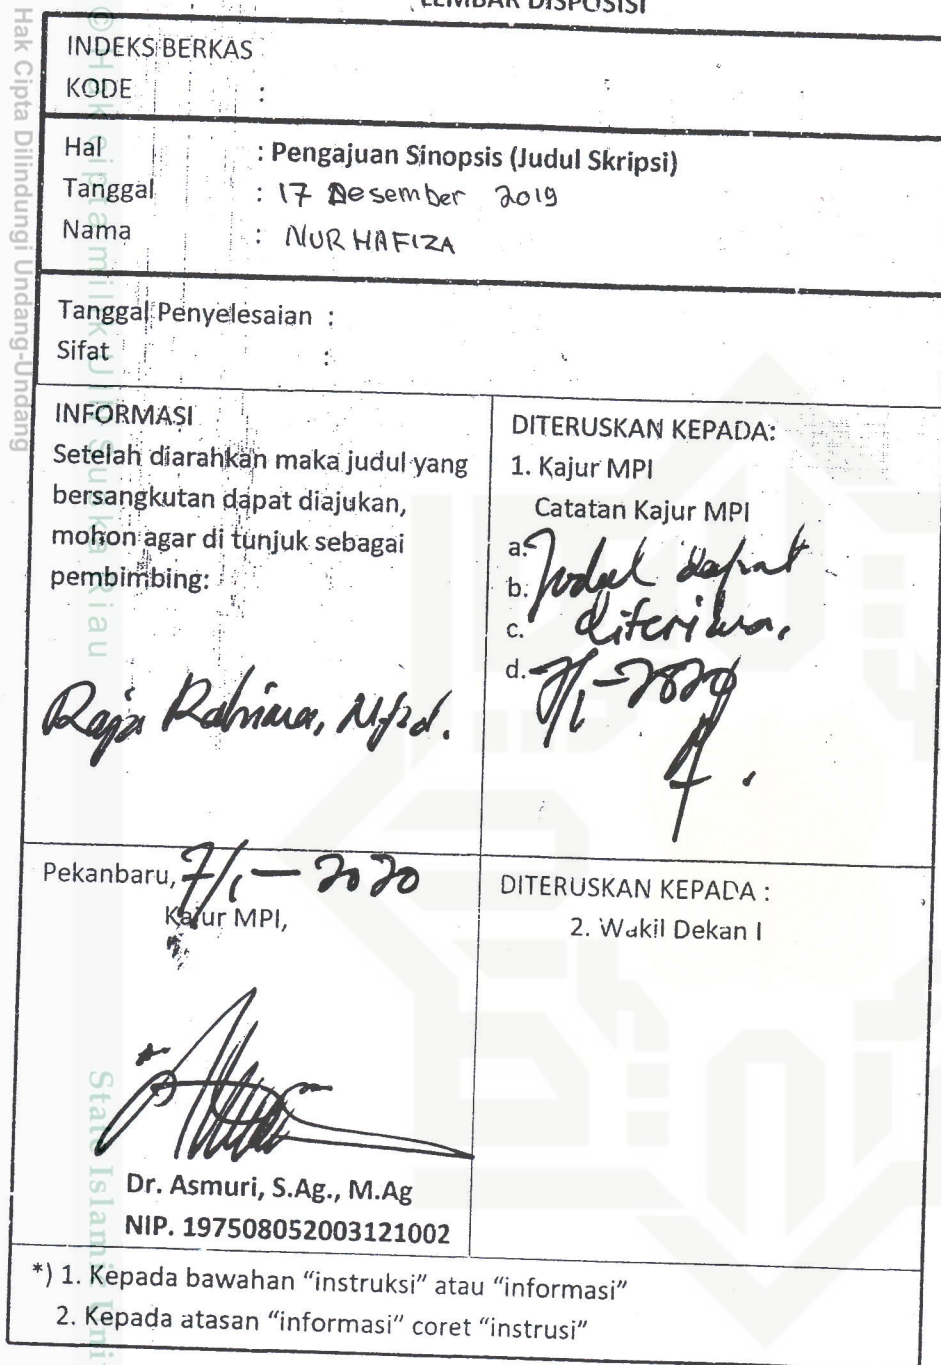 LEMBAR DISPOSISI
INDEKS BERKAS
KODE :
Hal : Pengajuan Sinopsis (Judul Skripsi)
Tanggal : 17 Desember 2019
Nama : NUR HAFIZA
Tanggal Penyelesaian :
Sifat :
INFORMASI
Setelah diarahkan maka judul yang
bersangkutan dapat diajukan,
mohon agar di tunjuk sebagai
pembimbing:
Raja Rahima, M.Pd.
DITERUSKAN KEPADA:
1. Kajur MPI
Catatan Kajur MPI
a. Judul dapat
b.
c. diterima.
d. 7/1-2020
Pekanbaru, 7/1-2020
Kajur MPI,
Dr. Asmuri, S.Ag., M.Ag
NIP. 197508052003121002
DITERUSKAN KEPADA :
2. Wakil Dekan I
*) 1. Kepada bawahan "instruksi" atau "informasi"
2. Kepada atasan "informasi" coret "instrusi"
Hak Cipta Dilindungi Undang-Undang
© Hak cipta milik UIN Suska Riau
State Islamic Uni